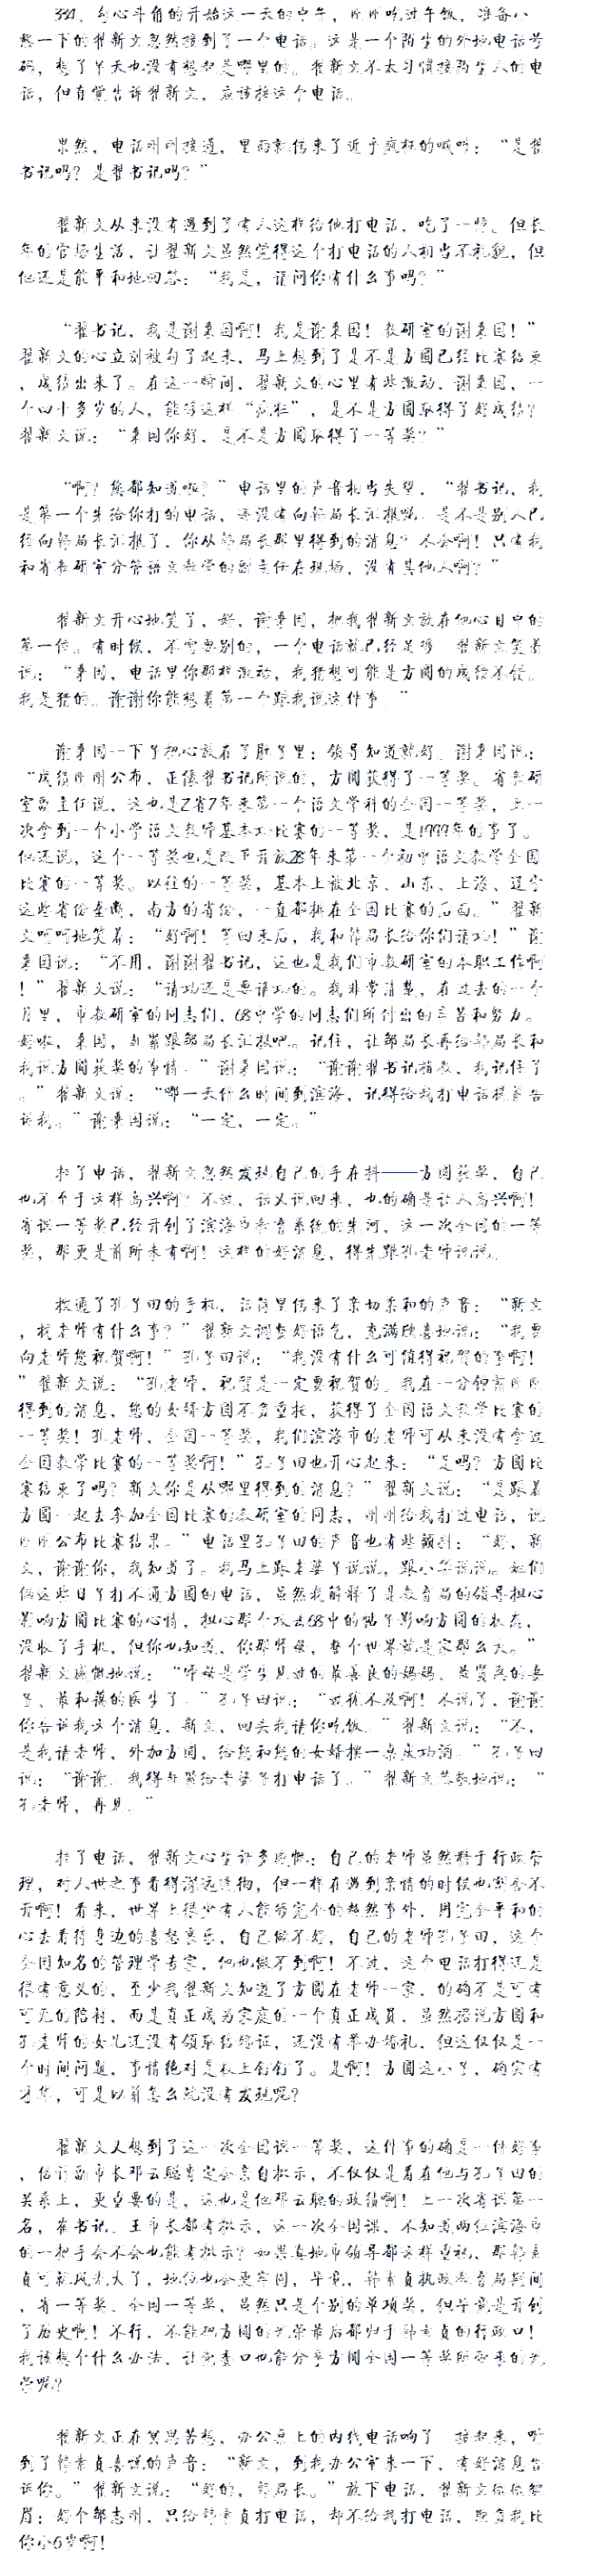 334、勾心斗角的开始这一天的中午，刚刚吃过午饭，准备小
憩一下的翟新文忽然接到了一个电话。这是一个陌生的外地电话号
码，想了半天也没有想起是哪里的。翟新文不太习惯接陌生人的电
话，但直觉告诉翟新文，应该接这个电话。
果然，电话刚刚接通，里面就传来了近乎疯狂的喊叫：“是翟
书记吗？是翟书记吗？”
翟新文从来没有遇到了有人这样给他打电话，吃了一惊。但长
年的官场生活，让翟新文虽然觉得这个打电话的人相当不礼貌，但
他还是能平和地回答：“我是，请问你有什么事吗？”
“翟书记，我是谢秉国啊！我是谢秉国！教研室的谢秉国！”
翟新文的心立刻被勾了起来，马上想到了是不是方圆已经比赛结束
，成绩出来了。在这一瞬间，翟新文的心里有些激动，谢秉国，一
个四十多岁的人，能够这样“疯狂”，是不是方圆取得了好成绩？
翟新文说：“秉国你好，是不是方圆取得了一等奖？”
“啊？您都知道啦？”电话里的声音相当失望，“翟书记，我
是第一个先给你打的电话，还没有向韩局长汇报呢。是不是别人已
经向韩局长汇报了，你从韩局长那里得到的消息？不会啊！只有我
和省教研室分管语文教学的副主任在现场，没有其他人啊？”
翟新文开心地笑了，好，谢秉国，把我翟新文放在他心目中的
第一位。有时候，不需要别的，一个电话就已经足够。翟新文笑着
说：“秉国，电话里你那样激动，我猜想可能是方圆的成绩不错。
我是猜的。谢谢你能想着第一个跟我说这件事。”
谢秉国一下子把心放在了肚子里：领导知道就好。谢秉国说：
“成绩刚刚公布，正像翟书记所说的，方圆获得了一等奖。省教研
室副主任说，这也是Z省7年来第一个语文学科的全国一等奖，上一
次拿到一个小学语文教师基本功比赛的一等奖，是1999年的事了。
他还说，这个一等奖也是改革开放28年来第一个初中语文教学全国
比赛的一等奖。以往的一等奖，基本上被北京、山东、上海、辽宁
这些省份垄断，南方的省份，一直都排在全国比赛的后面。”翟新
文呵呵地笑着：“好啊！等回来后，我和韩局长给你们请功！”谢
秉国说：“不用，谢谢翟书记，这也是我们市教研室的本职工作啊
！”翟新文说：“请功还是要请功的。我非常清楚，在过去的一个
月里，市教研室的同志们，68中学的同志们所付出的辛苦和努力。
好啦，秉国，赶紧跟邹局长汇报吧。记住，让邹局长再给韩局长和
我说方圆获奖的事情。”谢秉国说：“谢谢翟书记指教，我记住了
。”翟新文说：“哪一天什么时间到滨海，记得给我打电话提前告
诉我。”谢秉国说：“一定，一定。”
挂了电话，翟新文忽然发现自己的手在抖——方圆获奖，自己
也不至于这样高兴啊？不过，话又说回来，也的确是让人高兴啊！
省课一等奖已经开创了滨海市教育系统的先河，这一次全国的一等
奖，那更是前所未有啊！这样的好消息，得先跟孔老师说说。
拨通了孔子田的手机，话筒里传来了亲切柔和的声音：“新文
，找老师有什么事？”翟新文调整好语气，充满欣喜地说：“我要
向老师您祝贺啊！”孔子田说：“我没有什么可值得祝贺的事啊！
”翟新文说：“孔老师，祝贺是一定要祝贺的。我在一分钟前刚刚
得到的消息，您的女婿方圆不负重托，获得了全国语文教学比赛的
一等奖！孔老师，全国一等奖，我们滨海市的老师可从来没有拿过
全国教学比赛的一等奖啊！”孔子田也开心起来：“是吗？方圆比
赛结束了吗？新文你是从哪里得到的消息？”翟新文说：“是跟着
方圆一起去参加全国比赛的教研室的同志，刚刚给我打过电话，说
刚刚公布比赛结果。”电话里孔子田的声音也有些颤抖：“好，新
文，谢谢你，我知道了。我马上跟老婆子说说，跟小华说说。她们
俩这些日子打不通方圆的电话，虽然我解释了是教育局的领导担心
影响方圆比赛的心情，担心那个攻击68中的帖子影响方圆的状态，
没收了手机，但你也知道，你那师母，整个世界就是家那么大。”
翟新文感慨地说：“师母是学生见过的最善良的妈妈、最贤惠的妻
子、最和蔼的医生了。”孔子田说：“过犹不及啊！不说了，谢谢
你告诉我这个消息，新文，回头我请你吃饭。”翟新文说：“不，
是我请老师，外加方圆，给您和您的女婿摆一桌庆功酒。”孔子田
说：“谢谢。我得赶紧给老婆子打电话了。”翟新文恭敬地说：“
孔老师，再见。”
挂了电话，翟新文心生许多感慨：自己的老师虽然精于行政管
理，对人世之事看得深远透彻，但一样在遇到亲情的时候也割舍不
开啊！看来，世界上很少有人能够完全的超然事外，用完全平和的
心去看待身边的喜怒哀乐，自己做不好，自己的老师孔子田，这个
全国知名的管理学专家，他也做不到啊！不过，这个电话打得还是
很有意义的，至少我翟新文知道了方圆在老师一家，的确不是可有
可无的陪衬，而是真正成为家庭的一个真正成员，虽然据说方圆和
孔老师的女儿还没有领取结婚证，还没有举办婚礼，但这仅仅是一
个时间问题，事情绝对是板上钉钉了。是啊！方圆这小子，确实有
才华，可是以前怎么就没有发现呢？
翟新文又想到了这一次全国课一等奖，这件事的确是一件好事
，估计副市长邓云聪肯定会亲自批示，不仅仅是看在他与孔子田的
关系上，更重要的是，这也是他邓云聪的政绩啊！上一次省课第一
名，崔书记、王市长都有批示，这一次全国课，不知道两位滨海市
的一把手会不会也能有批示？如果真地市领导都这样重视，那韩素
贞可就风光大了，地位也会更牢固，毕竟，韩素贞执政教育局期间
，省一等奖、全国一等奖，虽然只是个别的单项奖，但毕竟是开创
了历史啊！不行，不能把方圆的光荣最后都归于韩素贞的行政口！
我该想个什么办法，让党委口也能分享方圆全国一等奖所带来的光
荣呢？
翟新文正在冥思苦想，办公桌上的内线电话响了。接起来，听
到了韩素贞喜悦的声音：“新文，到我办公室来一下，有好消息告
诉你。”翟新文说：“好的，韩局长。”放下电话，翟新文依依皱
眉：好个邹志刚，只给韩素贞打电话，却不给我打电话，欺负我比
你小6岁啊！